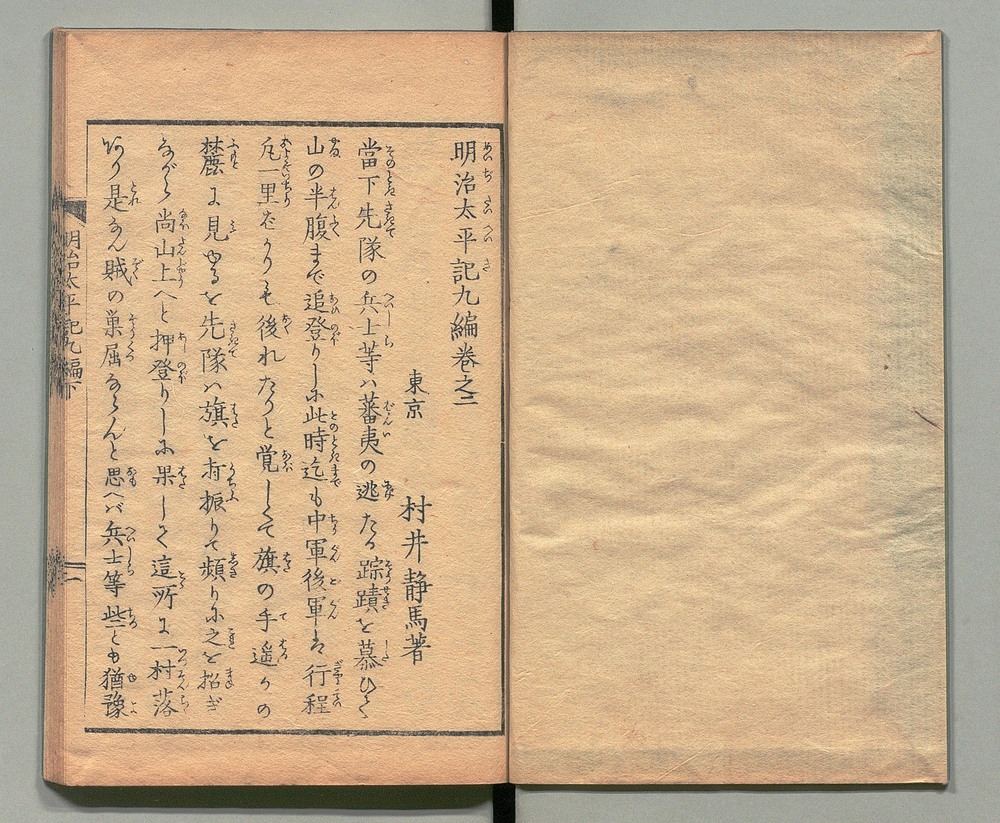 明治太平記九編巻之二
東京
村井静馬著
當下先隊の兵士等ハ蕃夷の逃たる踪蹟を慕ひて
山の半腹まで追登りしに此時迄も中軍後軍は行程
凡一里ばかりも後れたりと覚しくて旗の手遥かの
麓に見ゆるを先隊ハ旗を打振りて頻りに之を招ぎ
ながら尚山上へと押登りしに果して這所に一村落
あり是なん賊の巣屈ならんと思へバ兵士等些とも猶豫
明治太平記九編下
二